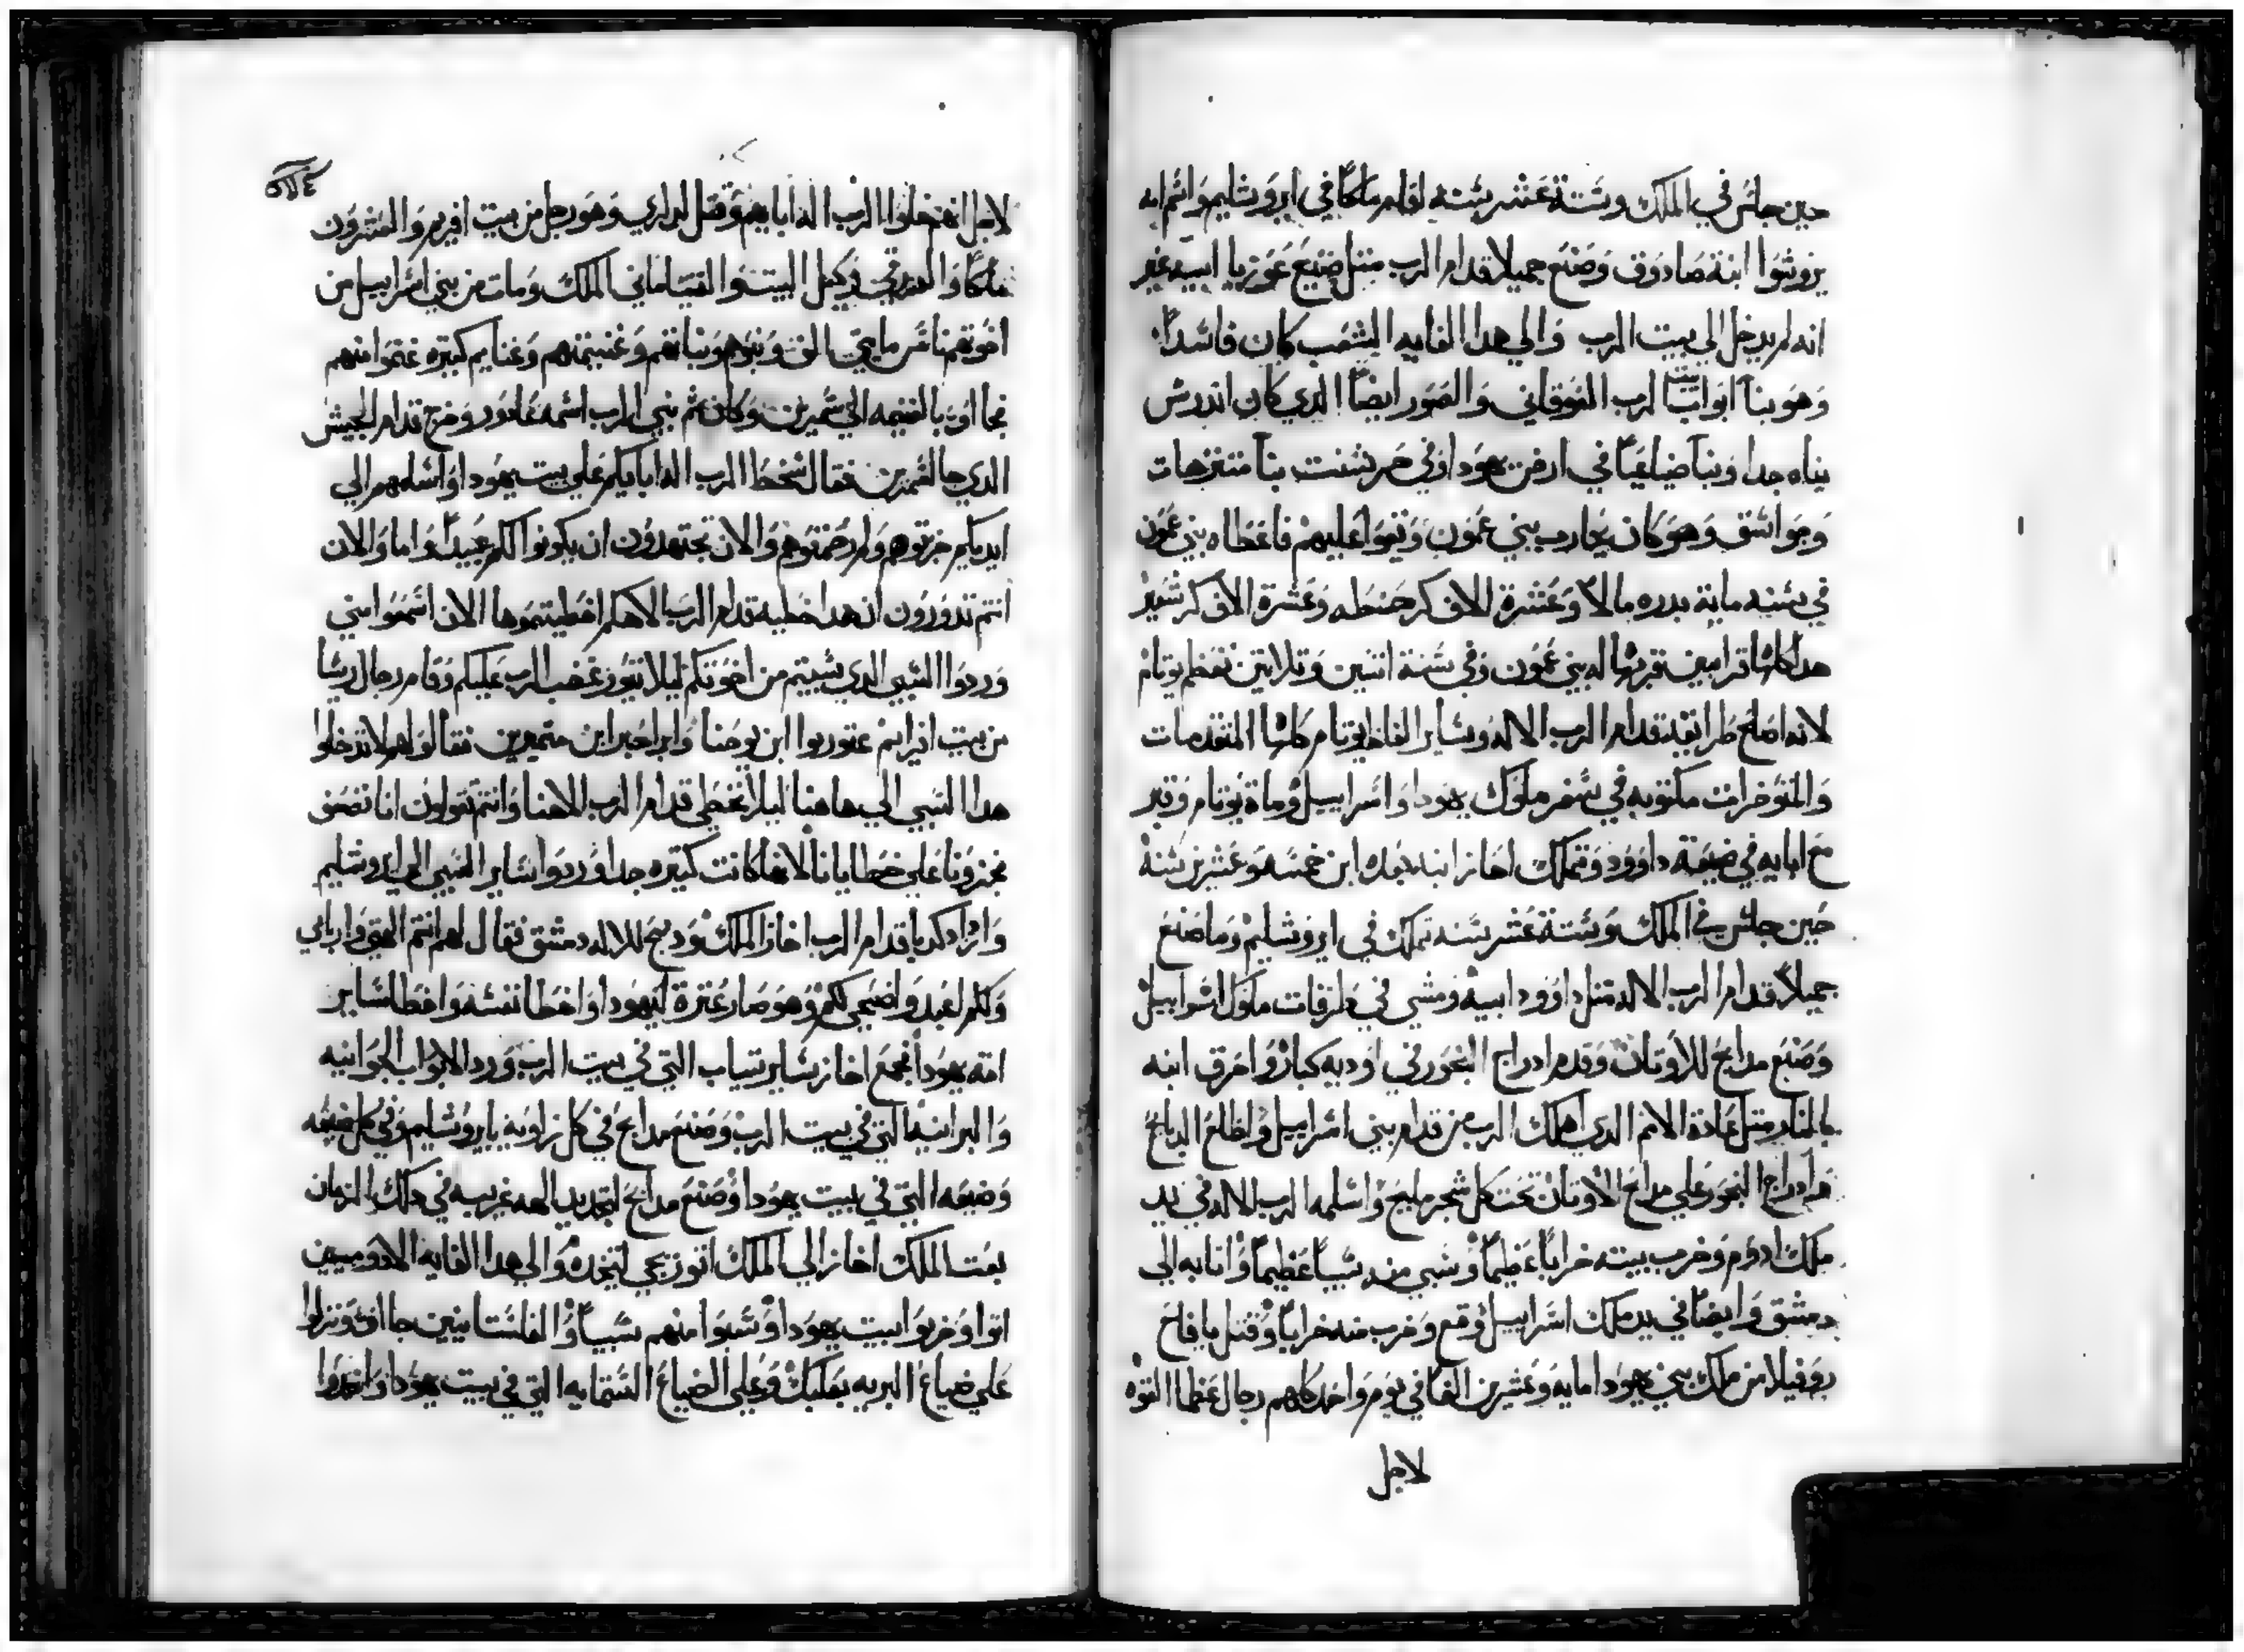 حين جلس في الملك وستة عشر سنه اقام ملكا في ايروشليم واسم امه
يروشوا ابنة صادوق وصنع جميلا قدام الرب مثل صنيع عوزيا ابيه غير
انه لم يدخل الي بيت الرب والي هدا الغايه الشعب كان فاسدا
وهو بنا ابواب بيت الرب الفوقاني والصور ايضا الدي كان اندرس
بناه جدا وبنا ضياعا في ارض يهودا وفي بنا متنزهات
وجواسق وهو كان يحارب بني عمون وقوا عليهم فاعطاه بني عمون
في سنه ماية بدره مالا وعشرة الاف كر حنطه وعشرة الاف كر شعير
هدا كلها قرابين قربها له بني عمون وفي سنة اتنين وتلاتين تعظم يوتام
لانه اصلح طرايقه قدام الرب الاله وساير الفاظ يوتام كلها المتقدمات
والمتوخرات مكتوبه في سفر ملوك يهودا واسراييل ومات يوتام وقبر
مع ابايه في ضيعة داوود وتملك احاز ابنه بعده ابن خمسه وعشرين سنة
حين جلس في الملك وستة عشر سنه تملك في ايروشليم وما صنع
جميلا قدام الرب الاله مثل داوود ابيه ومشي في طرقات ملوك اسراييل
وصنع مدابح للاوتان وقدم ادراج البخور في اوديه كبار واحرق ابنه
بالنار مثل عادة الامم الدي اهلك الرب من قدام بني اسراييل واطلع الدبايح
وادراج البخور علي مدابح الاوتان تحت كل شجر مليح واسلمه الرب الاله في يد
ملك ادوم وخرب بيته خرابا عظيما وسبي منه سبيا عظيما واتا به الي
دمشق وايضا في يد ملك اسراييل وقع وخرب منه خرابا وقتل يافاح
بن روفيلا من ملك بني يهودا مايه وعشرين الفا في يوم واحد كلهم رجال عظما القوه
لاجل
لاجل انهم خلوا الرب اله ابايهم وقتل وهو رجل من بيت افريم والعشرون
ملكا وكيل البيت والفتيا ماني الملك ومات من بني اسراييل من
اخوتهم الف وبنوهم وبناتهم وغنيمتهم وغنايم كتيره غنموا منهم
بالغنيمه الي شميرين وكان تم نبي الرب اسمه عادور وخرج قدام الجيش
الدي جا لشميرين فقال سخط الرب اله ابايكم علي بيت يهودا واسلمهم الي
ايديكم حزبتوهم ولم رحمتوهم والان تجتهدون ان يكونوا لكم عبيدا واما والان
انتم تدورون ان هدا خطيه قدام الرب الاهكم اخطيتموها الان اسمعوا مني
وردوا السبي الدي سبيتم من اخوتكم ليلا يتور غضب الرب عليكم وقام رجال ريسا
من بيت افرايم عتوريوا ابن يوحنا وابراخيرا ابن متميرين فقالوا لهم لا تدخلوا
هدا السبي الي هاهنا ليلا نخطي قدام الرب الاهنا وانتم تقولون انا نصف
نجزونا علي خطايانا لانها كانت كتيره جدا وردوا ساير السبي الي ايروشليم
واراد كديا قدام الرب احاز الملك ودبح للاله دمشق فقال لهم انتم الهتي واربابي
ولكم اعبد واضحي لكم وهو صار عترة ليهودا واخطا نفسه واخطا ساير
امة يهودا فجمع احاز ساير تياب التي في بيت الرب ورد الابواب الجوانيه
والبرانيه التي في بيت الرب وصنع مدابح في كل زاويه بايروشليم وفي كل ضيعه
وضيعه التي في بيت يهودا وصنع مدابح الهه غريبه في دلك الزمان
بعت الملك احاز الي الملك اتور يجي لنجده والي هدا الغايه الادوميين
اتوا وخربوا بيت يهودا وسبوا منهم سبيا والفلستانيين جا ونزلوا
علي ضياع البريه بعلبك وعلي الضياع التيمانيه التي في بيت يهودا واخدوا